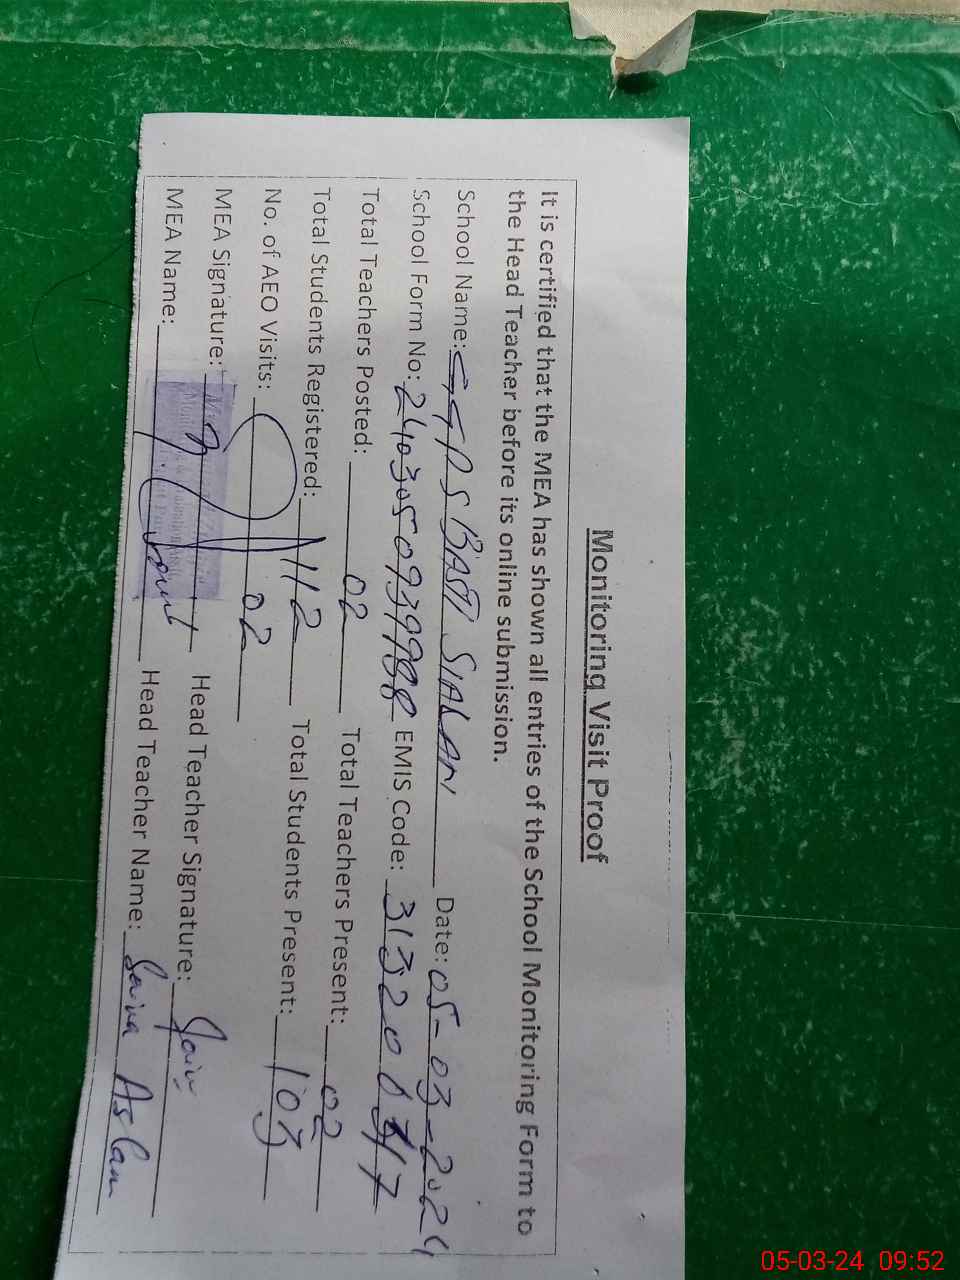 Monitoring Visit Proof
It is certified that the MEA has shown all entries of the School Monitoring Form to
the Head Teacher before its online submission.
School Name: GGPS BASTI SIALAN Date: 05-03-2024
School Form No: EMIS Code:
Total Teachers Posted: 02 Total Teachers Present: 02
Total Students Registered: 112 Total Students Present: 103
No. of AEO Visits: 02
MEA Signature: Head Teacher Signature:
MEA Name: Head Teacher Name: Aslam
05-03-24 09:52